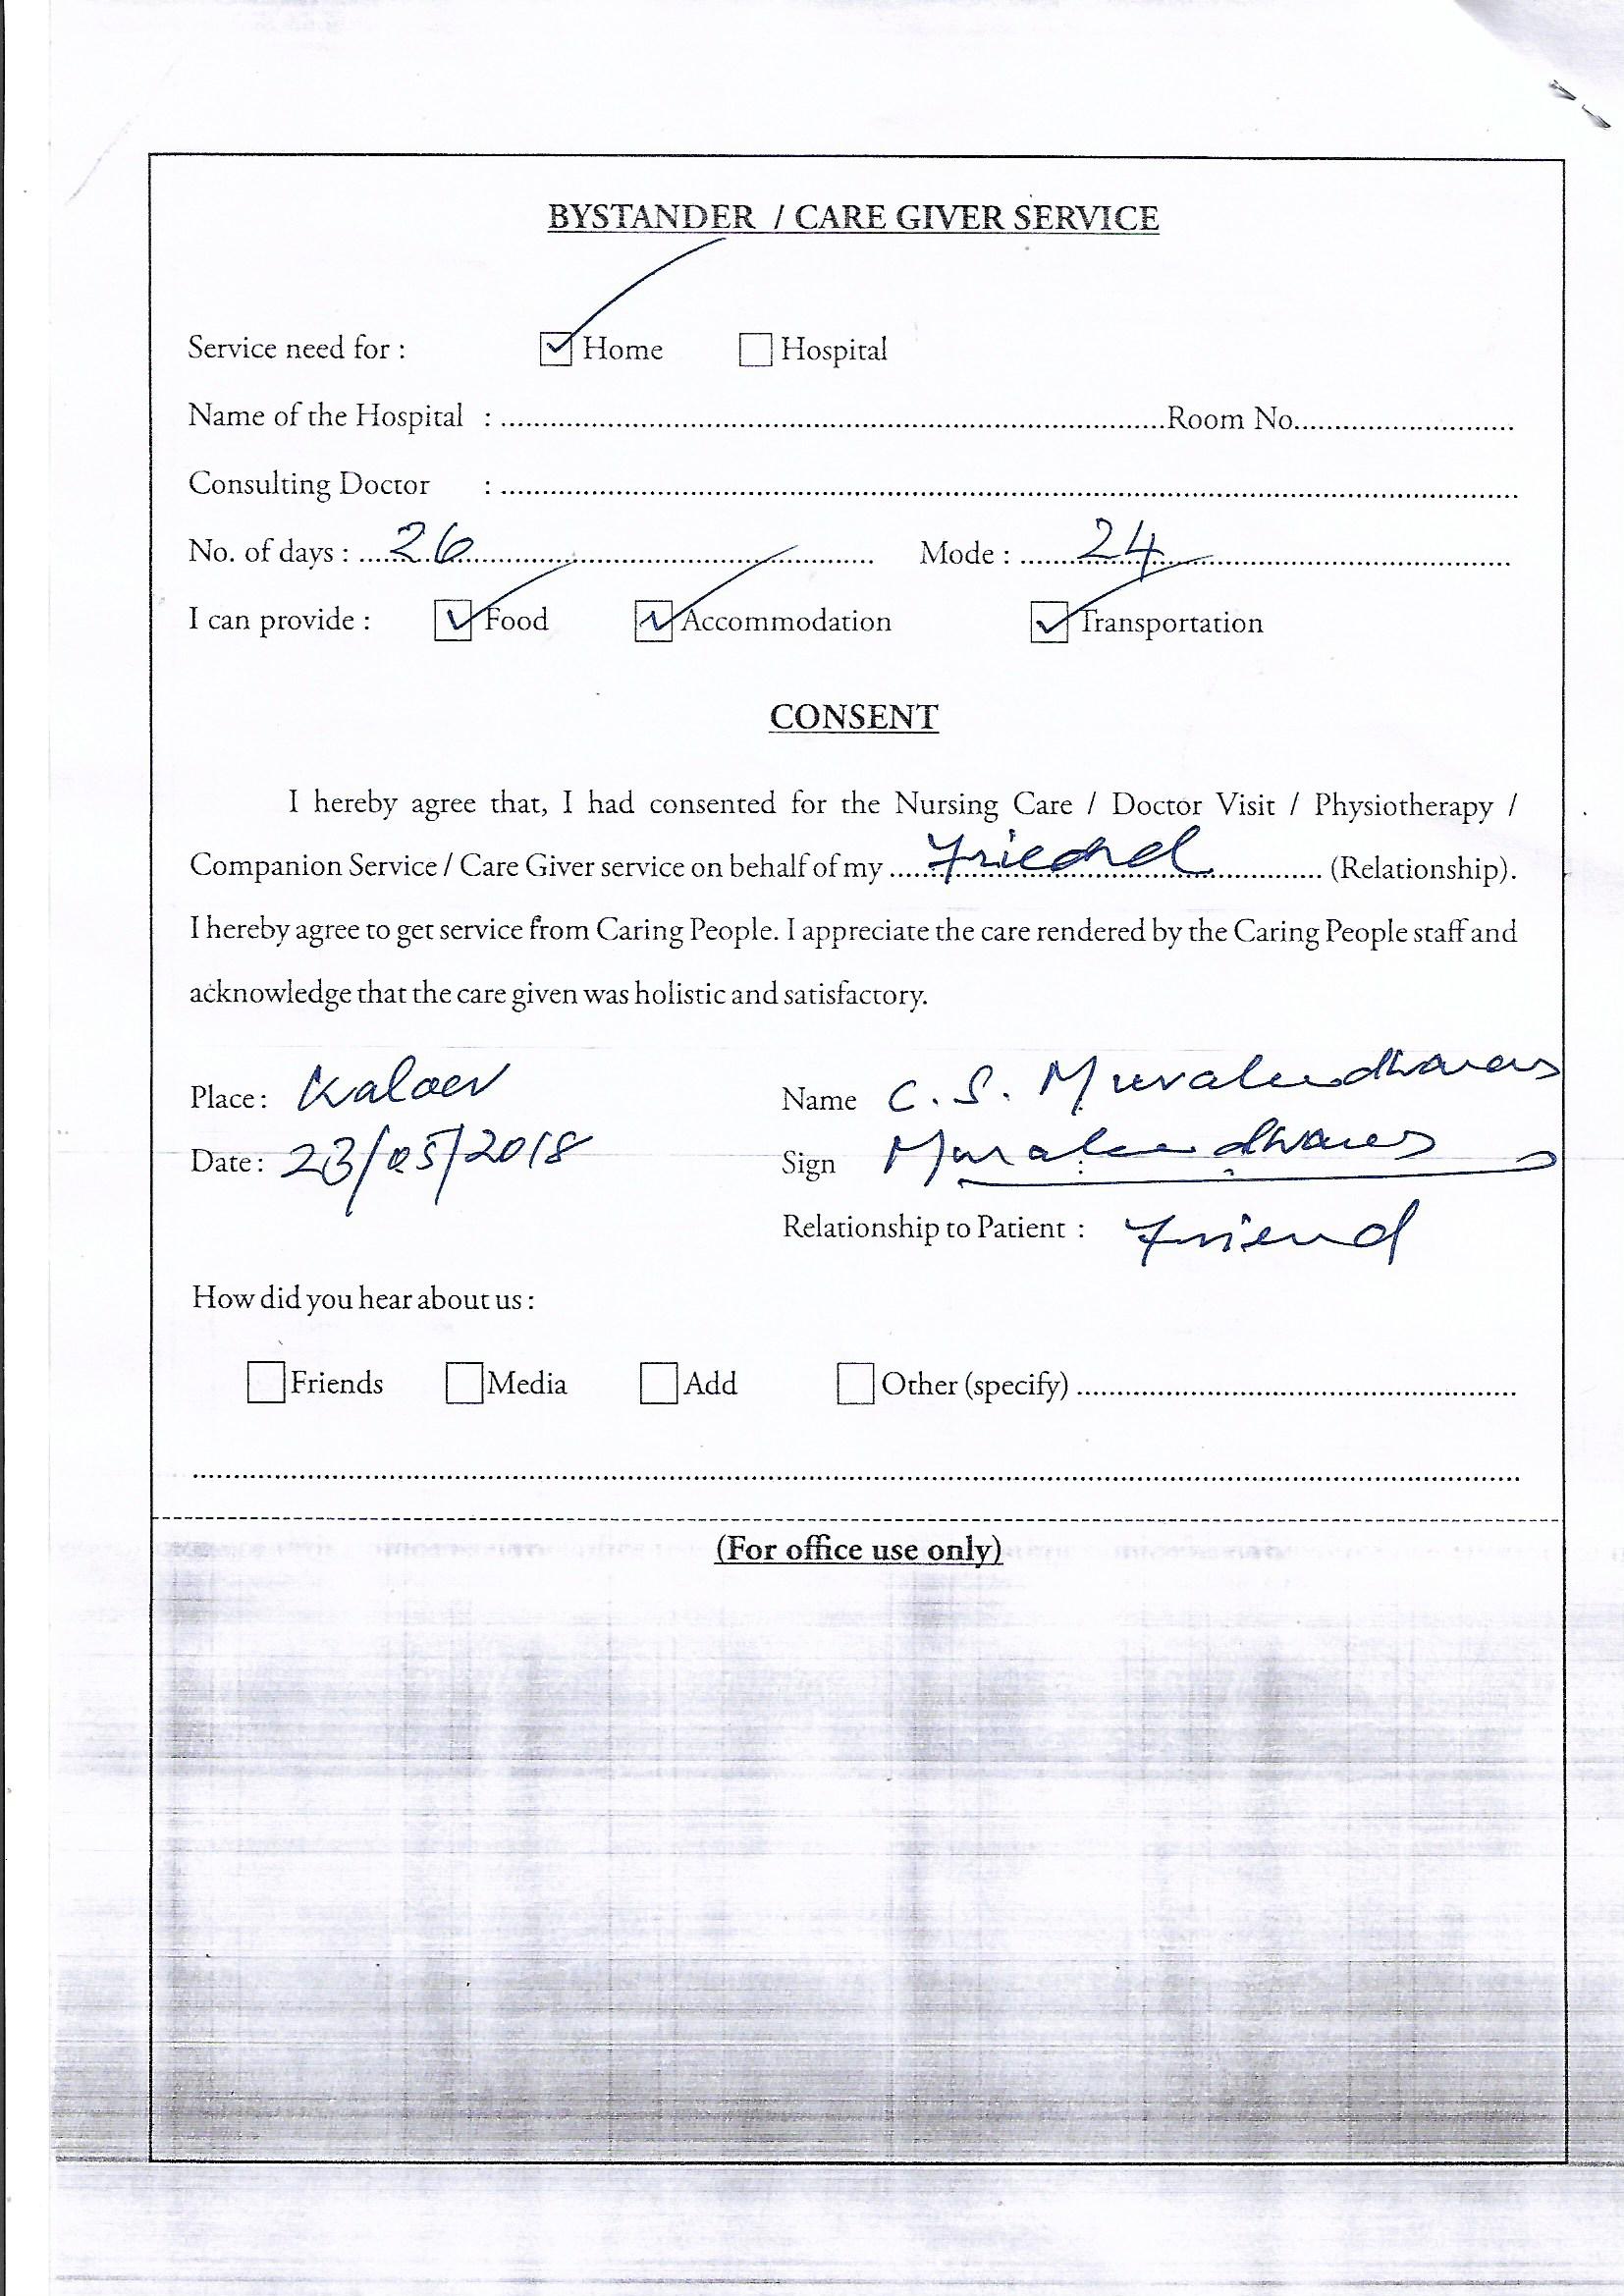 BYSTANDER / CARE GIVER SERVICE
Service need for : Home Hospital
Name of the Hospital : Room No.
Consulting Doctor :
No. of days : 26 Mode : 24
I can provide : Food Accommodation Transportation
CONSENT
I hereby agree that, I had consented for the Nursing Care / Doctor Visit / Physiotherapy /
Companion Service / Care Giver service on behalf of my Friend (Relationship).
I hereby agree to get service from Caring People. I appreciate the care rendered by the Caring People staff and
acknowledge that the care given was holistic and satisfactory.
Place : Name C. S.
Date : 23/05/2018 Sign
Relationship to Patient : Friend
How did you hear about us :
Friends Media Add Other (specify)
(For office use only)